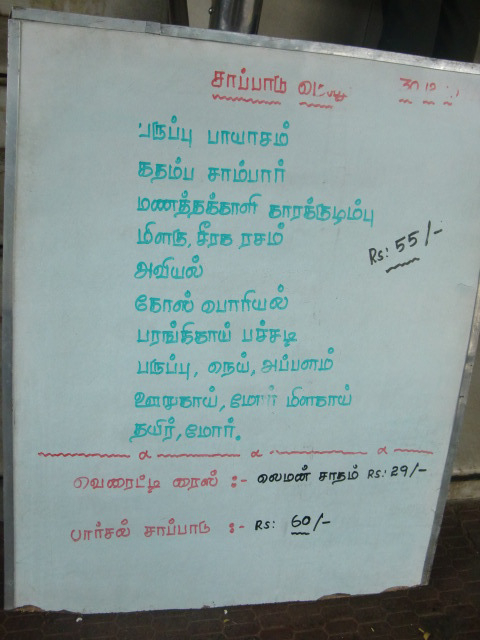 சாப்பாடு
பருப்பு பாயாசம்
கதம்ப சாம்பார்
மணத்தக்காளி காரக்குழம்பு
மிளகு, சீரக ரசம்
Rs: 55/-
அவியல்
கோஸ் பொரியல்
பரங்கிகாய் பச்சடி
பருப்பு, நெய், அப்பளம்
ஊறுகாய், மோர் மிளகாய்
தயிர், மோர்.
வெரைட்டி ரைஸ் :- லெமன் சாதம் Rs: 29/-
பார்சல் சாப்பாடு :- Rs: 60/-